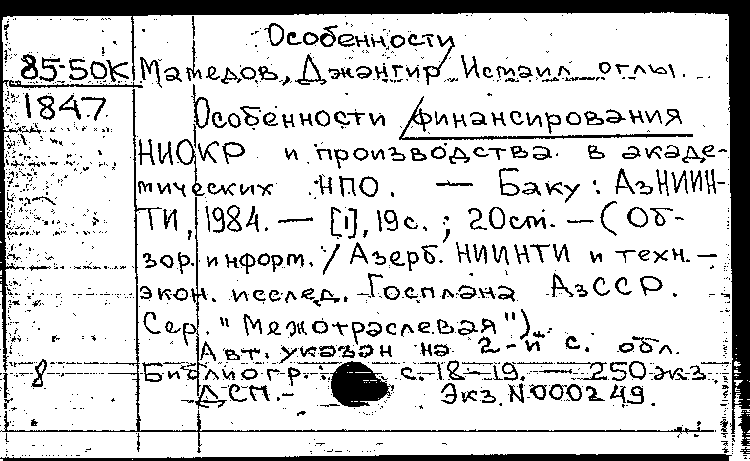 Особенности
85-50К Мамедов, Джангир Исмаил оглы.
1847 Особенности финансирования
НИОКР и производства в акаде-
мических НПО. — Баку: АзНИИН-
ТИ, 1984. — [1], 19с.; 20см. — (Об-
зор. информ. / Азерб. НИИНТИ и техн.-
экон. исслед. Госплана АзССР.
Сер. "Межотраслевая").
Авт. указан на 2-й с. обл.
8 Библиогр.: с. 18-19. — 250 экз.
ДСП. - Экз. N 000249.